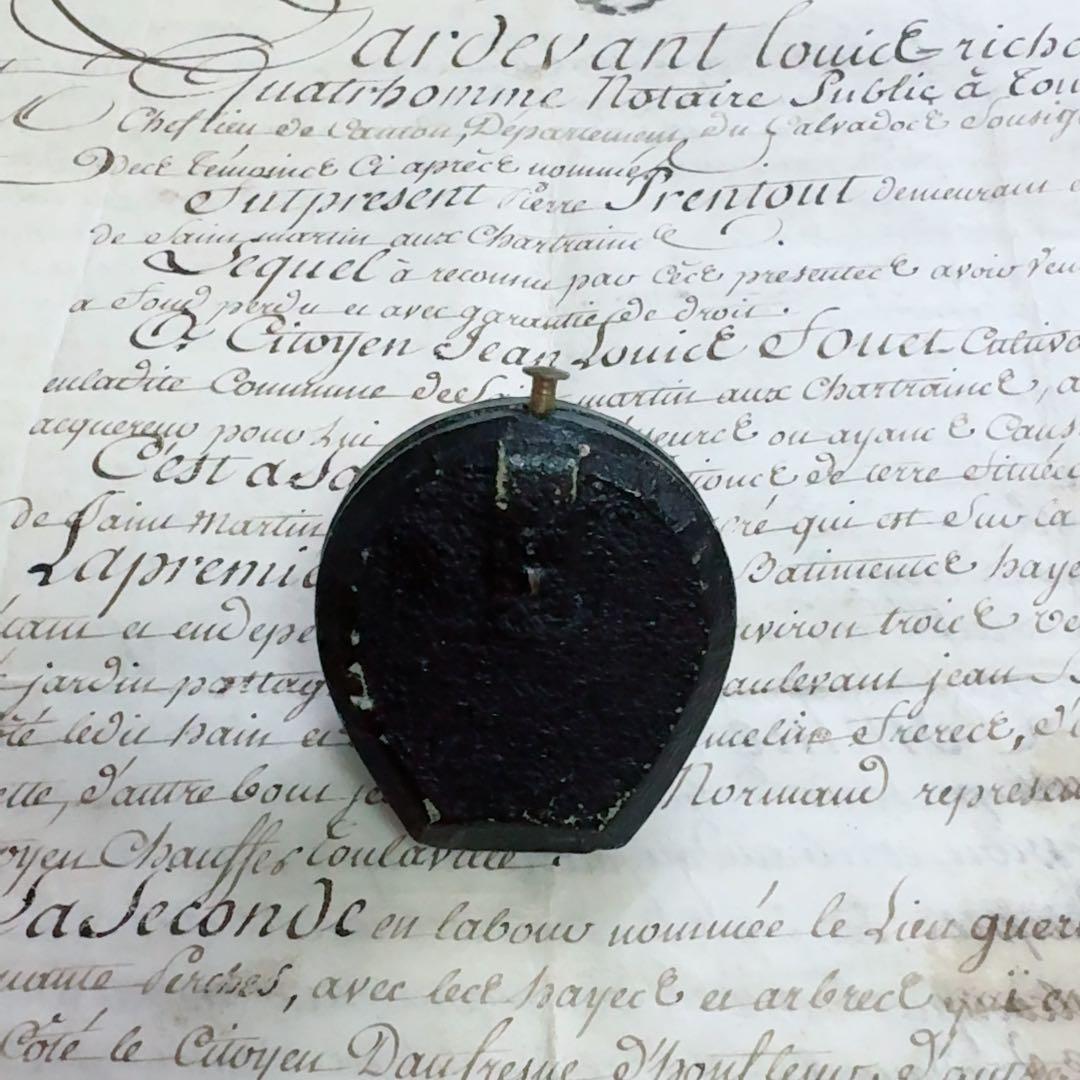 Pardevant Louick richa
Quatrhomme Notaire Public à Tou
Chef lieu de Canton, Département du Calvadock Sousig
Deck témoinck Ci aprèck nommés
Fut present Pierre Prentout demeurant
de Saint martin aux Chartrainck
Lequel à reconnu par Cèck presenteck avoir Ven
a fond perdu et avec garantie de droit.
Au Citoyen Jean Louick Fouet Cultiva
enladite Commune de S martin aux Chartrainck, a
acquereur pour Lui eurck ou ayanck Caus
C'est a Sa de terre Située
de Saint Martin qui est Sur la
La premi Batimenck haye
tant et en depe environ troick Ve
jardin potag aulevant jean
ledit bain et freck, d'
ette, d'autre bout je Normand represen
oyen Chauffer toulaville.
La Seconde en labour nommée le Lieu guer
uante Perches, avec leck hayeck et arbreck qui
Côté le Citoyen Daufresne d'honfleur, d'autre